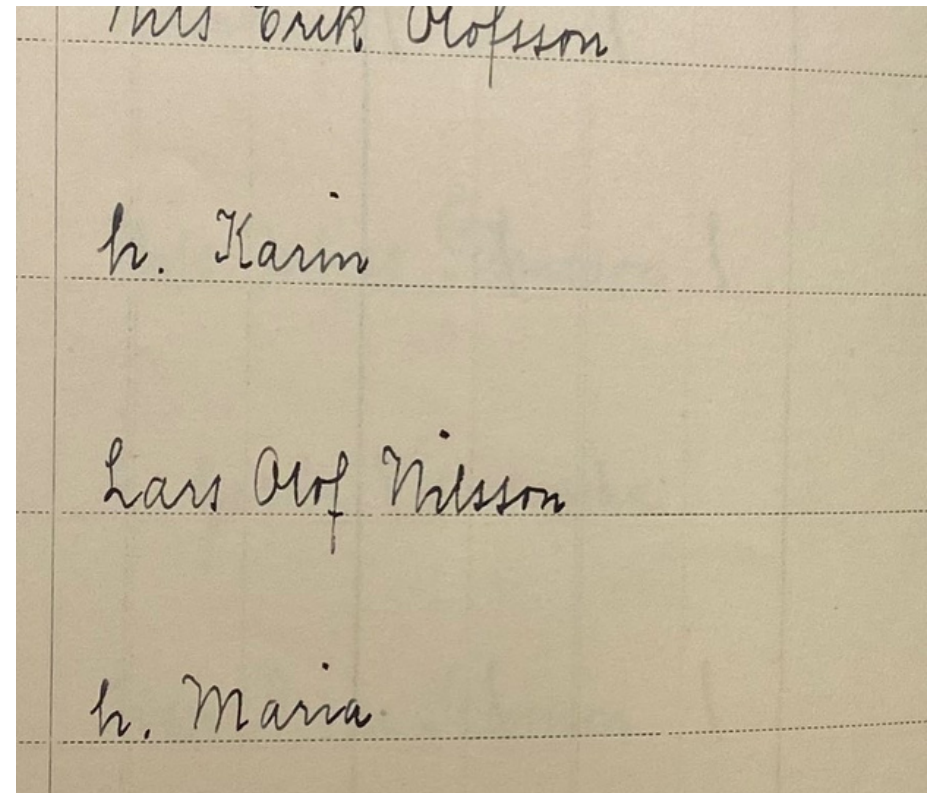 Nils Erik Olofsson
h. Karin
Lars Olof Nilsson
h. Maria